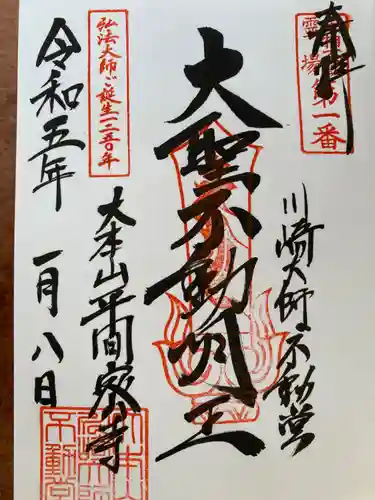 奉拝
霊場第一番
川崎大師不動堂
大聖不動明王
弘法大師ご誕生一二五〇年
大本山平間寺
令和五年
一月八日